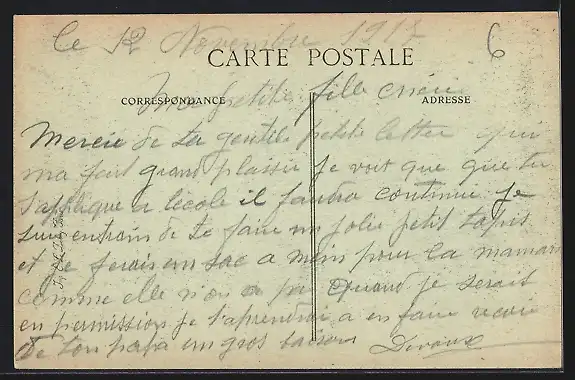 le 12 Novembre 1917
6
CARTE POSTALE
Ma petite fille cherie
CORRESPONDANCE
ADRESSE
Mercie de ta gentile petite letter qui
ma fait grand plaisir Je voit que que tu
t'applique a l'école il faudra continuer Je
suis entrain de te faire un jolie petit tapis
et Je ferais un sac a main pour la maman
comme elle n'on a pas Quand je serait
en permission Je t'aprendrai a en faire
De ton papa un gros baiser Devaux